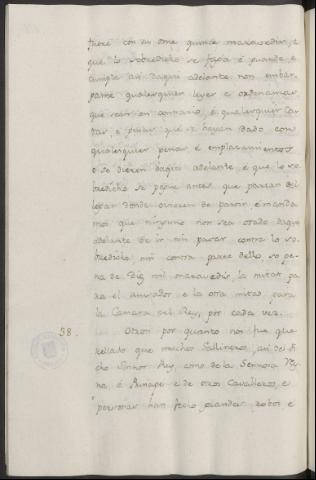 fuere con su ome quince maravedis, e
que lo sobredicho se faga é guarde, e
cumpla asi daqui adelante, non embar-
gante qualesquier leyes e ordenanzas
que sean en contrario, é qualesquier Car-
tas, e que se hayan dado, con
qualesquier penas é emplazamientos
o se dieren daqui adelante, é que lo so-
bredicho se pague antes que partan del
logar donde ovieren de parar, é manda-
mos que ninguno non sea osado daqui
adelante de ir nin pasar contra lo so-
bredicho, nin contra parte dello, so pe-
na de Diez mil maravedis, la mitat pa-
ra el acusador e la otra mitad para
la Camara del Rey, por cada vez.
58. Otrosi por quanto nos fue que-
rellado que muchos Gallineros, asi del di-
cho Señor Rey, como de la Señora Rey-
na, é Principe e de otros Cavalleros, e
personas han fecho grandes robos, e